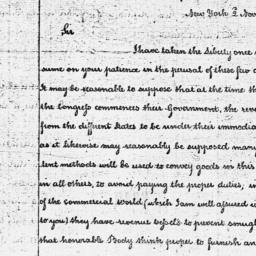 New York 2 Nov
Sir
I have taken the Liberty once
sume on your patience in the perusal of these few
It may be reasonable to suppose that at the time th
the Congress commences their Government, the reve
from the different States to be under their immedia
as it likewise may reasonably be supposed many
lent methods will be used to convey goods in this
in all others, to avoid paying the proper duties, in
of the commercial World (which I am well assured is
to you) they have revenue vessels to prevent smugl
that honorable Body think proper to furnish an